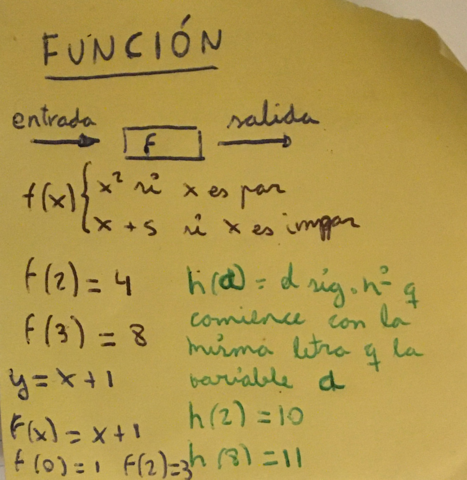 FUNCIÓN
entrada f salida
f(x) { x² si x es par
x + 5 si x es impar
f(2) = 4
f(3) = 8
y = x + 1
f(x) = x + 1
f(0) = 1 f(2) = 3
h(d) = d sig. nº q
comience con la
misma letra q la
variable d
h(2) = 10
h(8) = 11